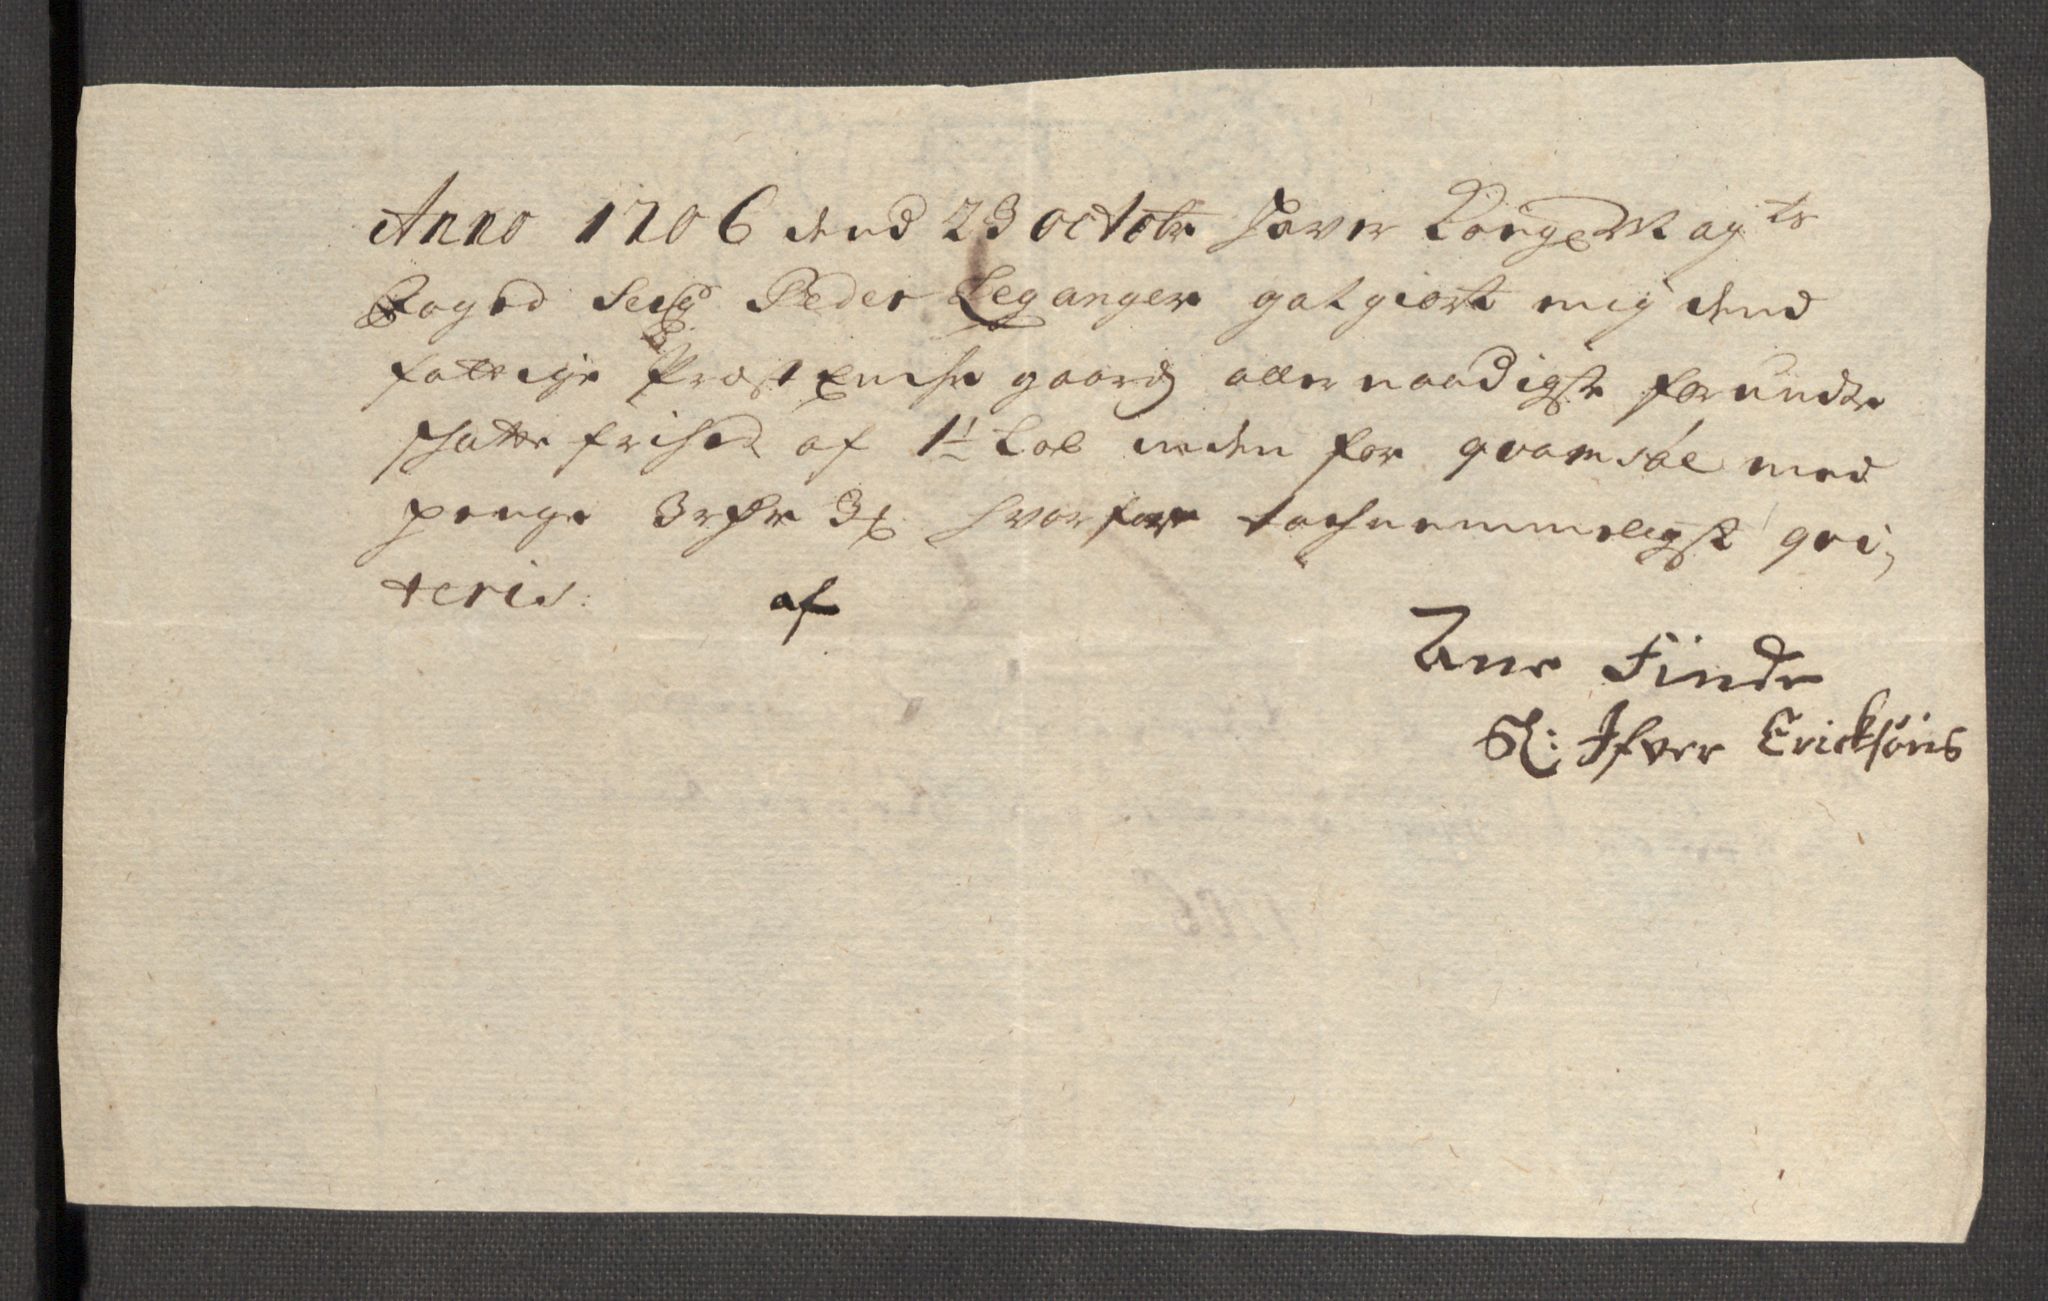 Anno 1706 dend 23 octobr haver Kongl Mayts
Foged Seigr Peder Leganger gotgiort mig dend
fattige Præst Enche gaard allernaadigste forundte
schatte frihed af 1½ Lob inden for qvamsøe med
penge 3 rdr 3 ℔ hvorfore tachnemmeligst qvi,
teris: af
Ane Finde
Sl: Ifver Ericksøns